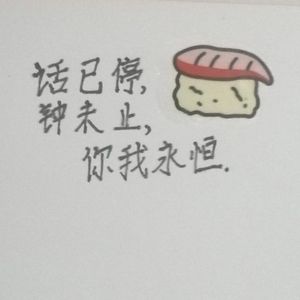 话已停,
钟未止,
你我永恒.